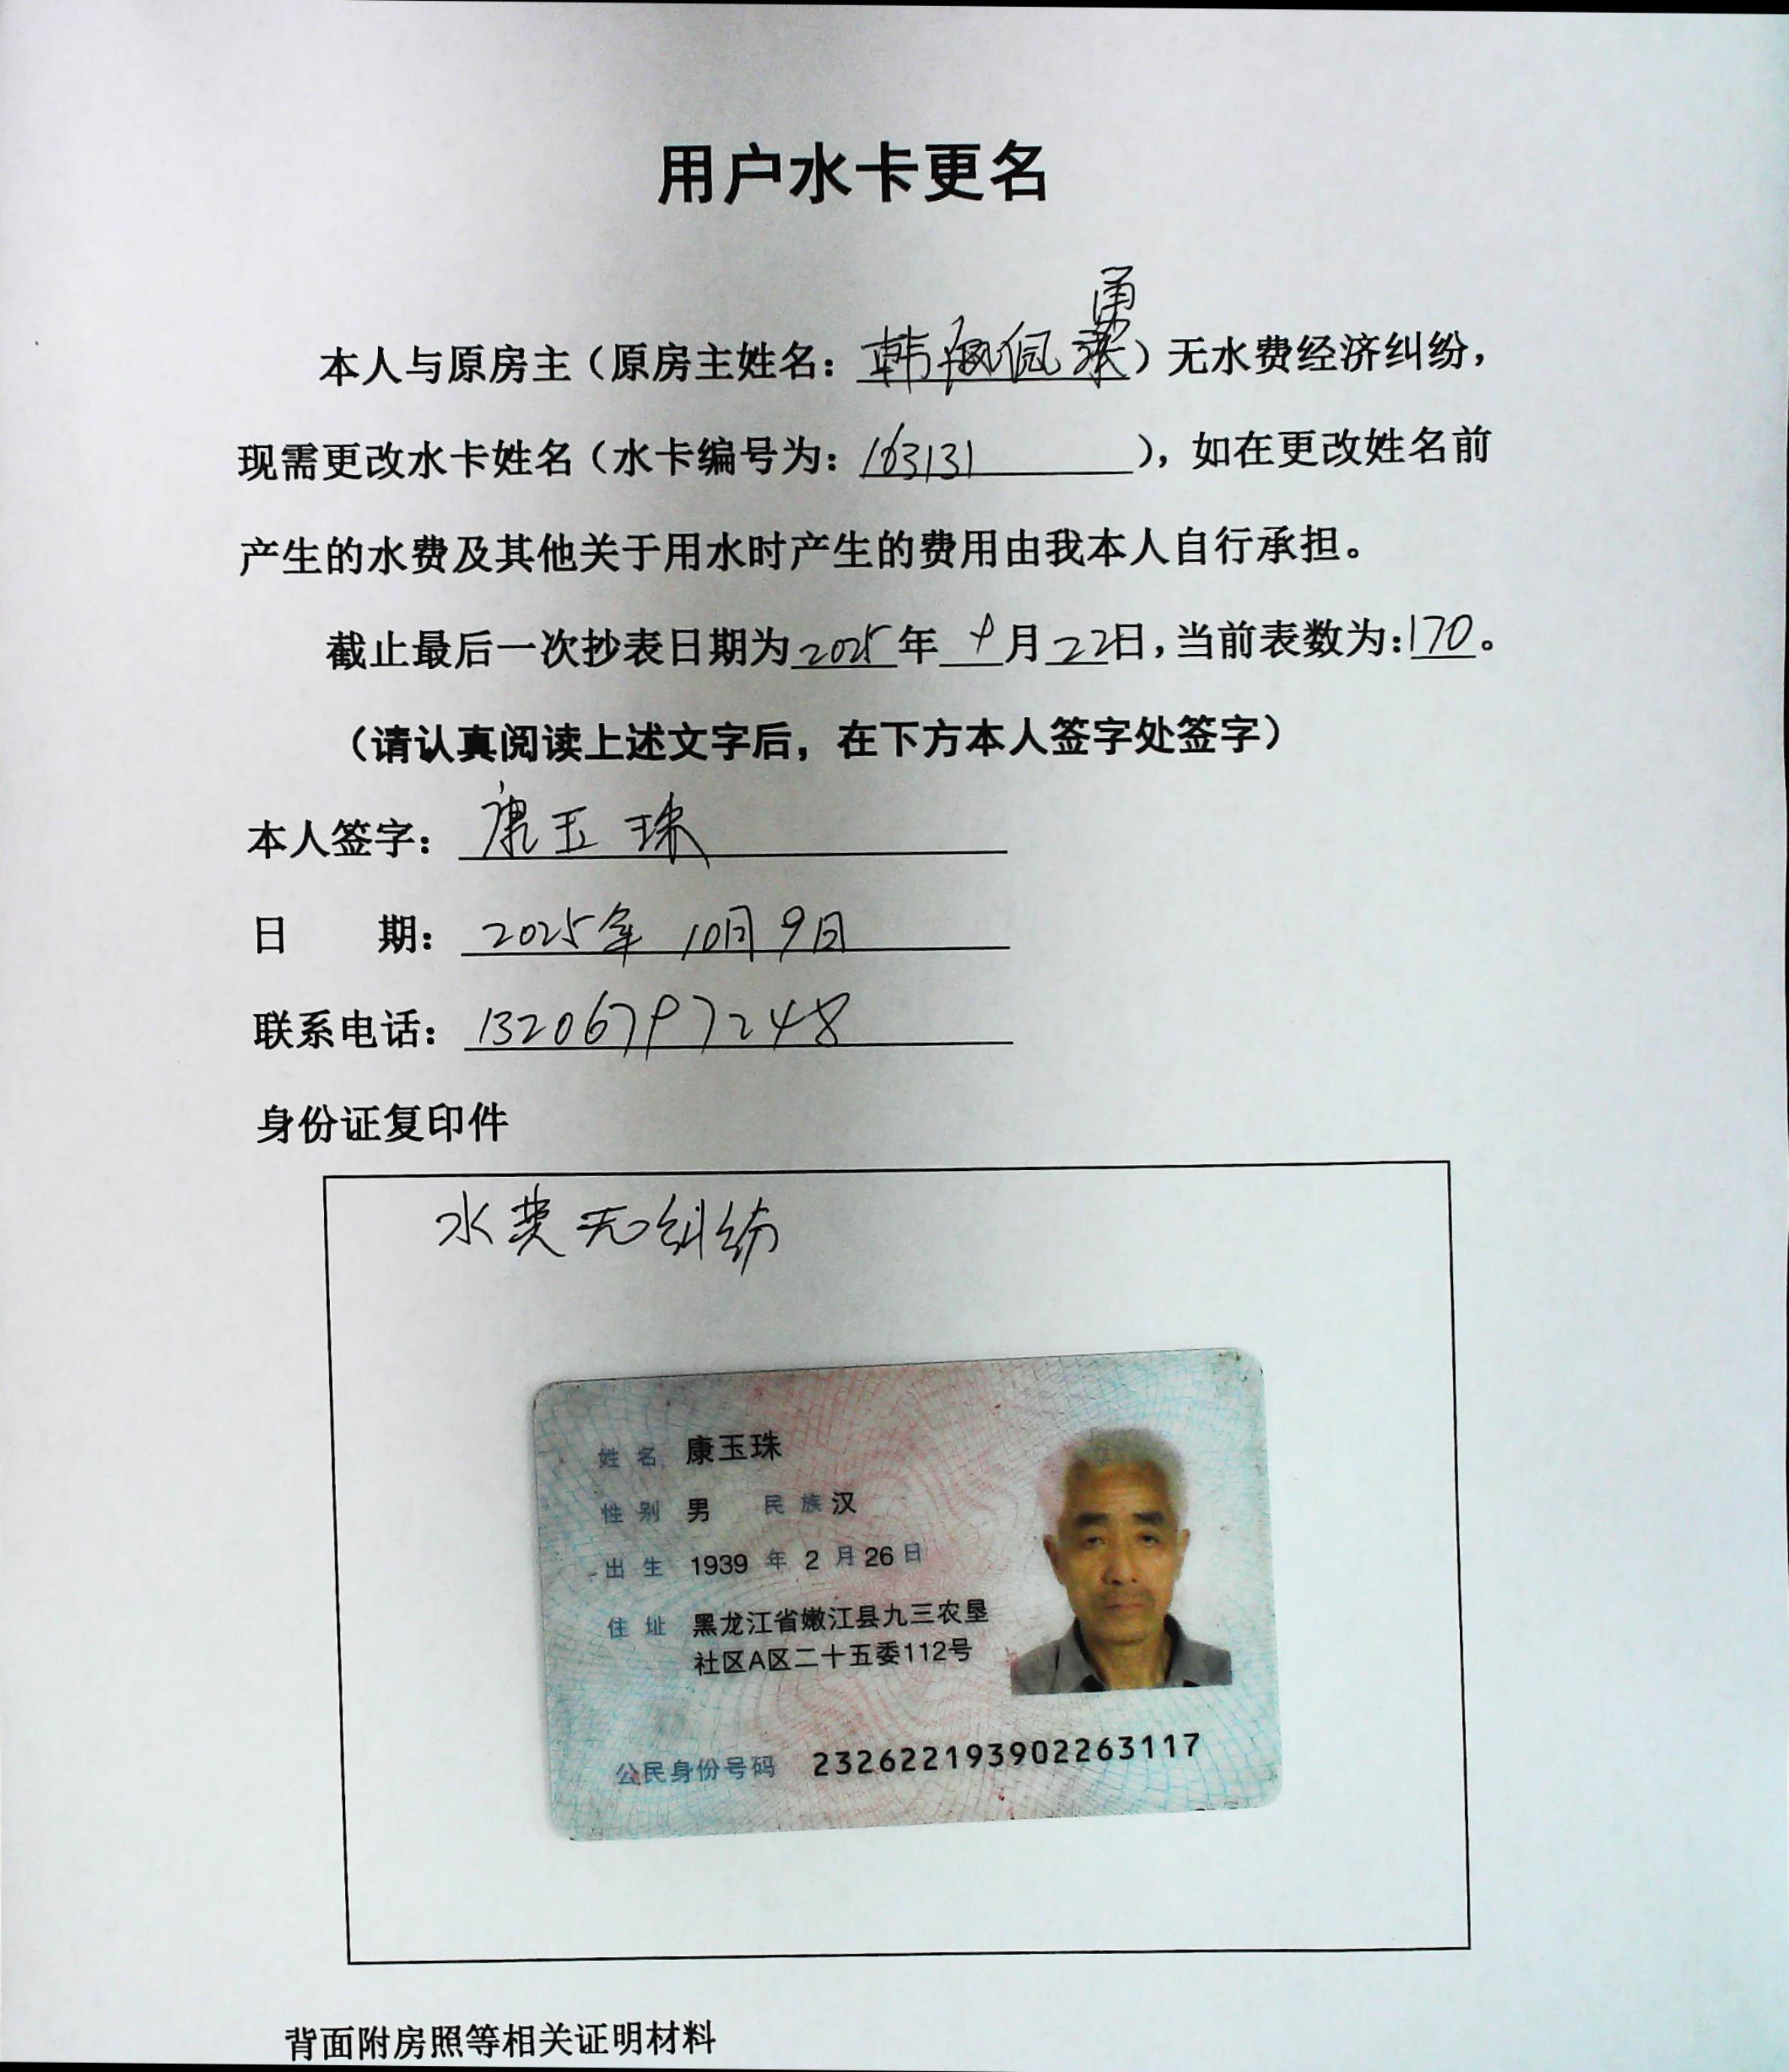 用户水卡更名
本人与原房主（原房主姓名：韩佩勇）无水费经济纠纷，
现需更改水卡姓名（水卡编号为：163131），如在更改姓名前
产生的水费及其他关于用水时产生的费用由我本人自行承担。
截止最后一次抄表日期为2025年 月22日，当前表数为：170。
（请认真阅读上述文字后，在下方本人签字处签字）
本人签字：康玉珠
日 期：2025年 10月9日
联系电话：13206797248
身份证复印件
水费无纠纷
姓名 康玉珠
性别 男 民族 汉
出生 1939 年 2 月 26 日
住址 黑龙江省嫩江县九三农垦
社区A区二十五委112号
公民身份号码 232622193902263117
背面附房照等相关证明材料